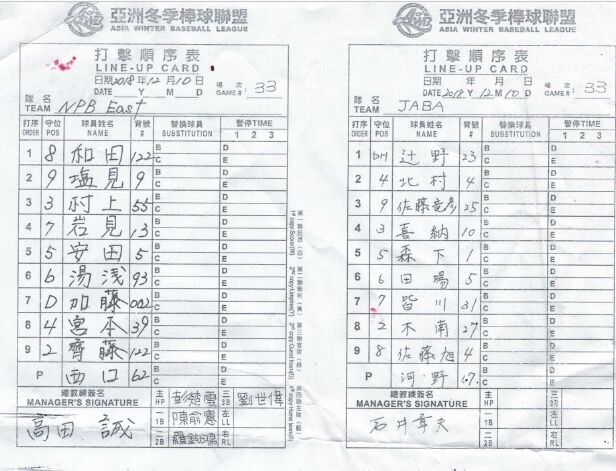 亞洲冬季棒球聯盟
ASIA WINTER BASEBALL LEAGUE
打擊順序表
LINE-UP CARD
日期 2018 年 12 月 10 日
DATE Y M D
場次 GAME#: 33
隊名 TEAM NPB East
打序 ORDER 守位 POS 球員姓名 NAME 背號 # 替換球員 SUBSTITUTION 暫停TIME 1 2 3
1 8 和田 122 B C D E
2 9 塩見 9 B C D E
3 3 村上 55 B C D E
4 7 岩見 13 B C D E
5 5 安田 5 B C D E
6 6 湯浅 93 B C D E
7 D 加藤 002 B C D E
8 4 宮本 39 B C D E
9 2 齊藤 122 B C D E
P 西口 62
總教練簽名 MANAGER'S SIGNATURE
高田 誠
主 HP 三 3B 劉世偉
一 1B 陳俞憲 左 LL
二 2B 右 RL
亞洲冬季棒球聯盟
ASIA WINTER BASEBALL LEAGUE
打擊順序表
LINE-UP CARD
日期 年 月 日
DATE 2018 Y 12 M 10 D
場次 GAME#: 33
隊名 TEAM JABA
打序 ORDER 守位 POS 球員姓名 NAME 背號 # 替換球員 SUBSTITUTION 暫停TIME 1 2 3
1 DH 辻野 23 B C D E
2 4 北村 4 B C D E
3 9 佐藤竜彦 25 B C D E
4 3 喜納 10 B C D E
5 5 森下 1 B C D E
6 6 田場 5 B C D E
7 7 皆川 31 B C D E
8 2 木南 27 B C D E
9 8 佐藤旭 4 B C D E
P 河野 17
總教練簽名 MANAGER'S SIGNATURE
石井章夫
主 HP 三 3B
一 1B 左 LL
二 2B 右 RL